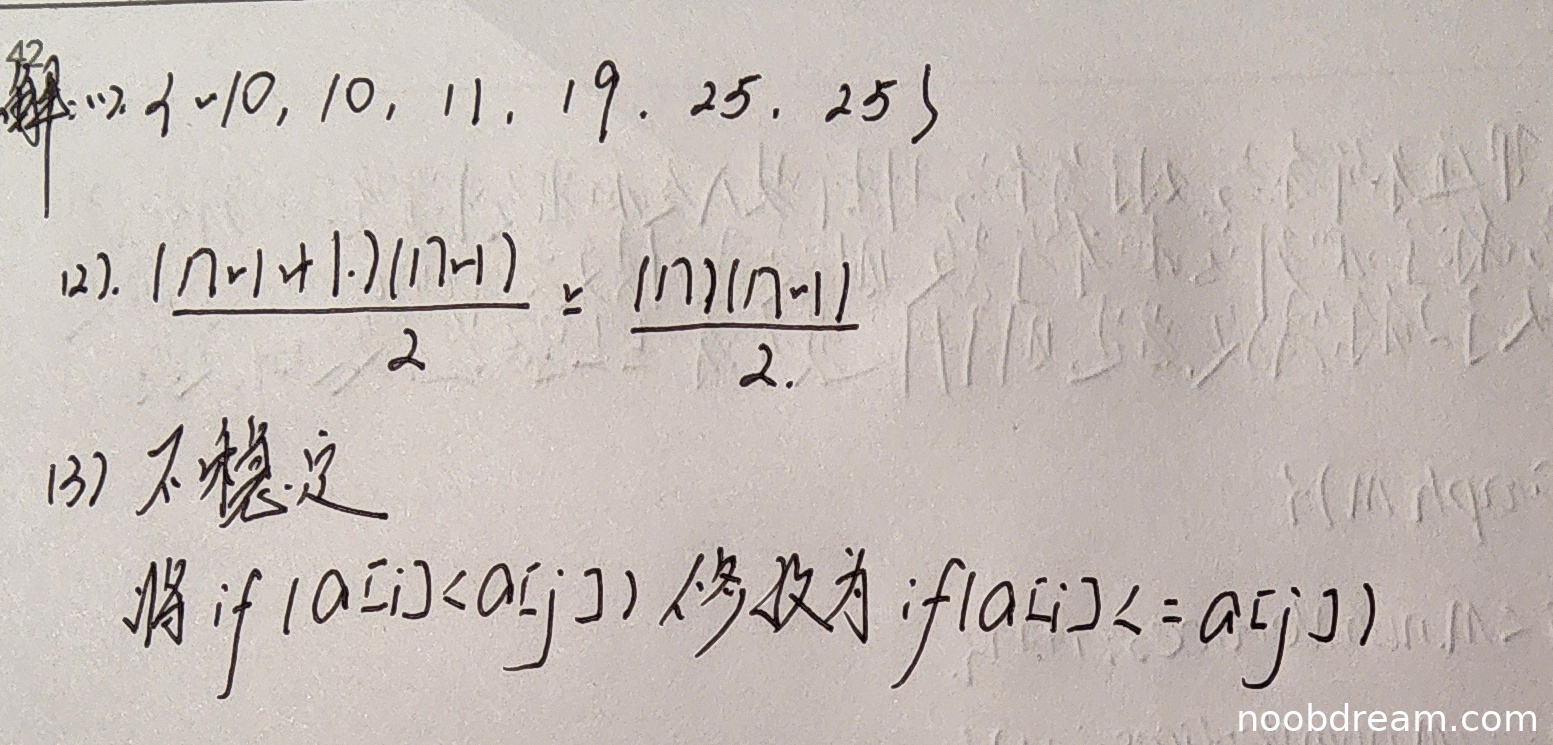 42
解:(1).{-10, 10, 11, 19. 25. 25}
(2). (n-1+1.)(n-1) / 2 = (n)(n-1) / 2.
(3) 不稳定
将if(a[i]<a[j])修改为if(a[i]<=a[j])
noobdream.com